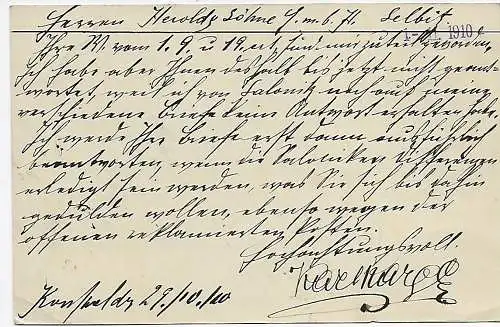 Herren Herolds Söhne G. m. b. H. Selbitz
1910
Ihre M. vom 1. 9. u 19. ct. sind mir zuteil geworden,
Ich habe aber Ihnen deshalb bis jetzt nicht geant-
wortet, weil ich von Salonik noch auf meine
verschiedene Briefe keine Antwort erhalten habe.
Ich werde Ihre Briefe erst dann ausführlich
beantworten, wenn die Saloniker Differenzen
erledigt sein werden, was Sie sich bis dahin
gedulden wollen, ebenso wegen der
offenen reklamierten Posten.
Hochachtungsvoll.
29./10./10